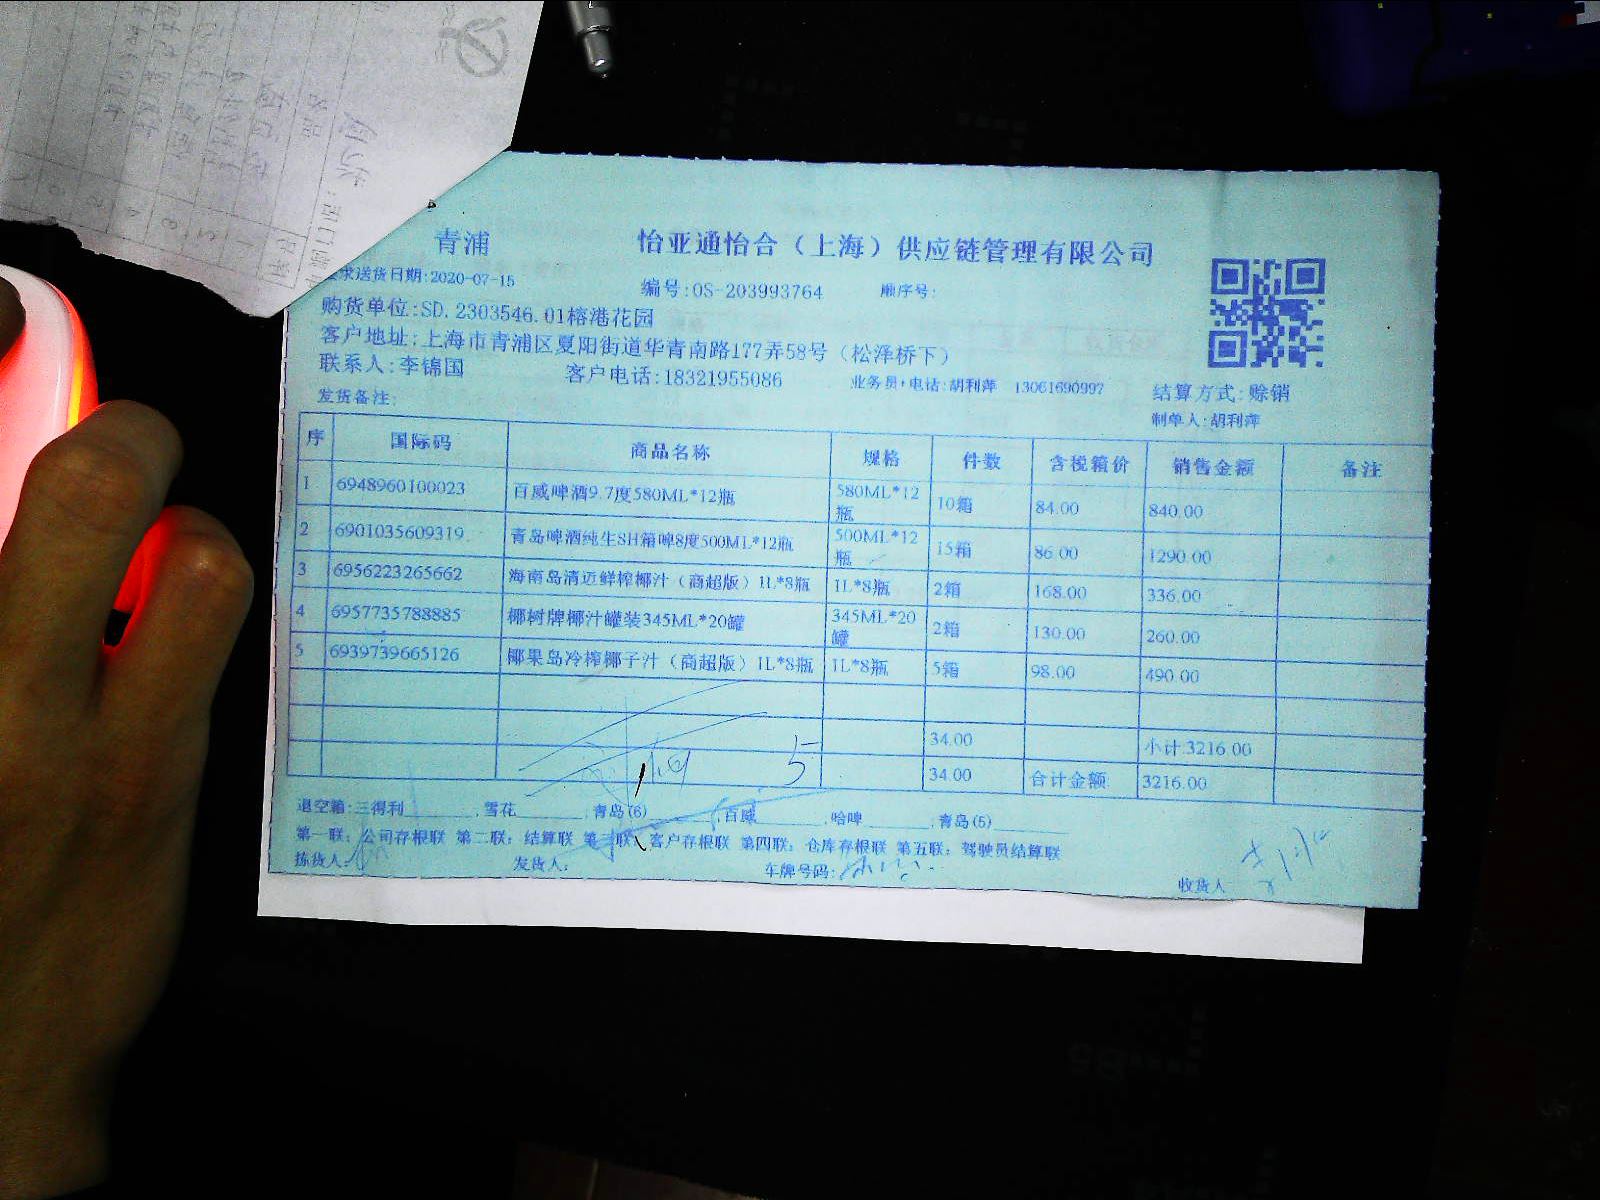 青浦 怡亚通怡合（上海）供应链管理有限公司
求送货日期:2020-07-15 编号:OS-203993764 顺序号:
购货单位:SD.2303546.01榕港花园
客户地址:上海市青浦区夏阳街道华青南路177弄58号（松泽桥下）
联系人:李锦国 客户电话:18321955086 业务员+电话:胡利萍 13061690997 结算方式:赊销
发货备注: 制单人:胡利萍
序 国际码 商品名称 规格 件数 含税箱价 销售金额 备注
1 6948960100023 百威啤酒9.7度580ML*12瓶 580ML*12瓶 10箱 84.00 840.00
2 6901035609319 青岛啤酒纯生SH箱啤8度500ML*12瓶 500ML*12瓶 15箱 86.00 1290.00
3 6956223265662 海南岛清迈鲜榨椰汁（商超版）1L*8瓶 1L*8瓶 2箱 168.00 336.00
4 6957735788885 椰树牌椰汁罐装345ML*20罐 345ML*20罐 2箱 130.00 260.00
5 6939739665126 椰果岛冷榨椰子汁（商超版）1L*8瓶 1L*8瓶 5箱 98.00 490.00
34.00 小计:3216.00
5 34.00 合计金额: 3216.00
退空箱:三得利________,雪花________,青岛(6)________,百威________,哈啤________,青岛(5)________
第一联：公司存根联 第二联：结算联 第三联：客户存根联 第四联：仓库存根联 第五联：驾驶员结算联
拣货人: 发货人: 车牌号码: 收货人